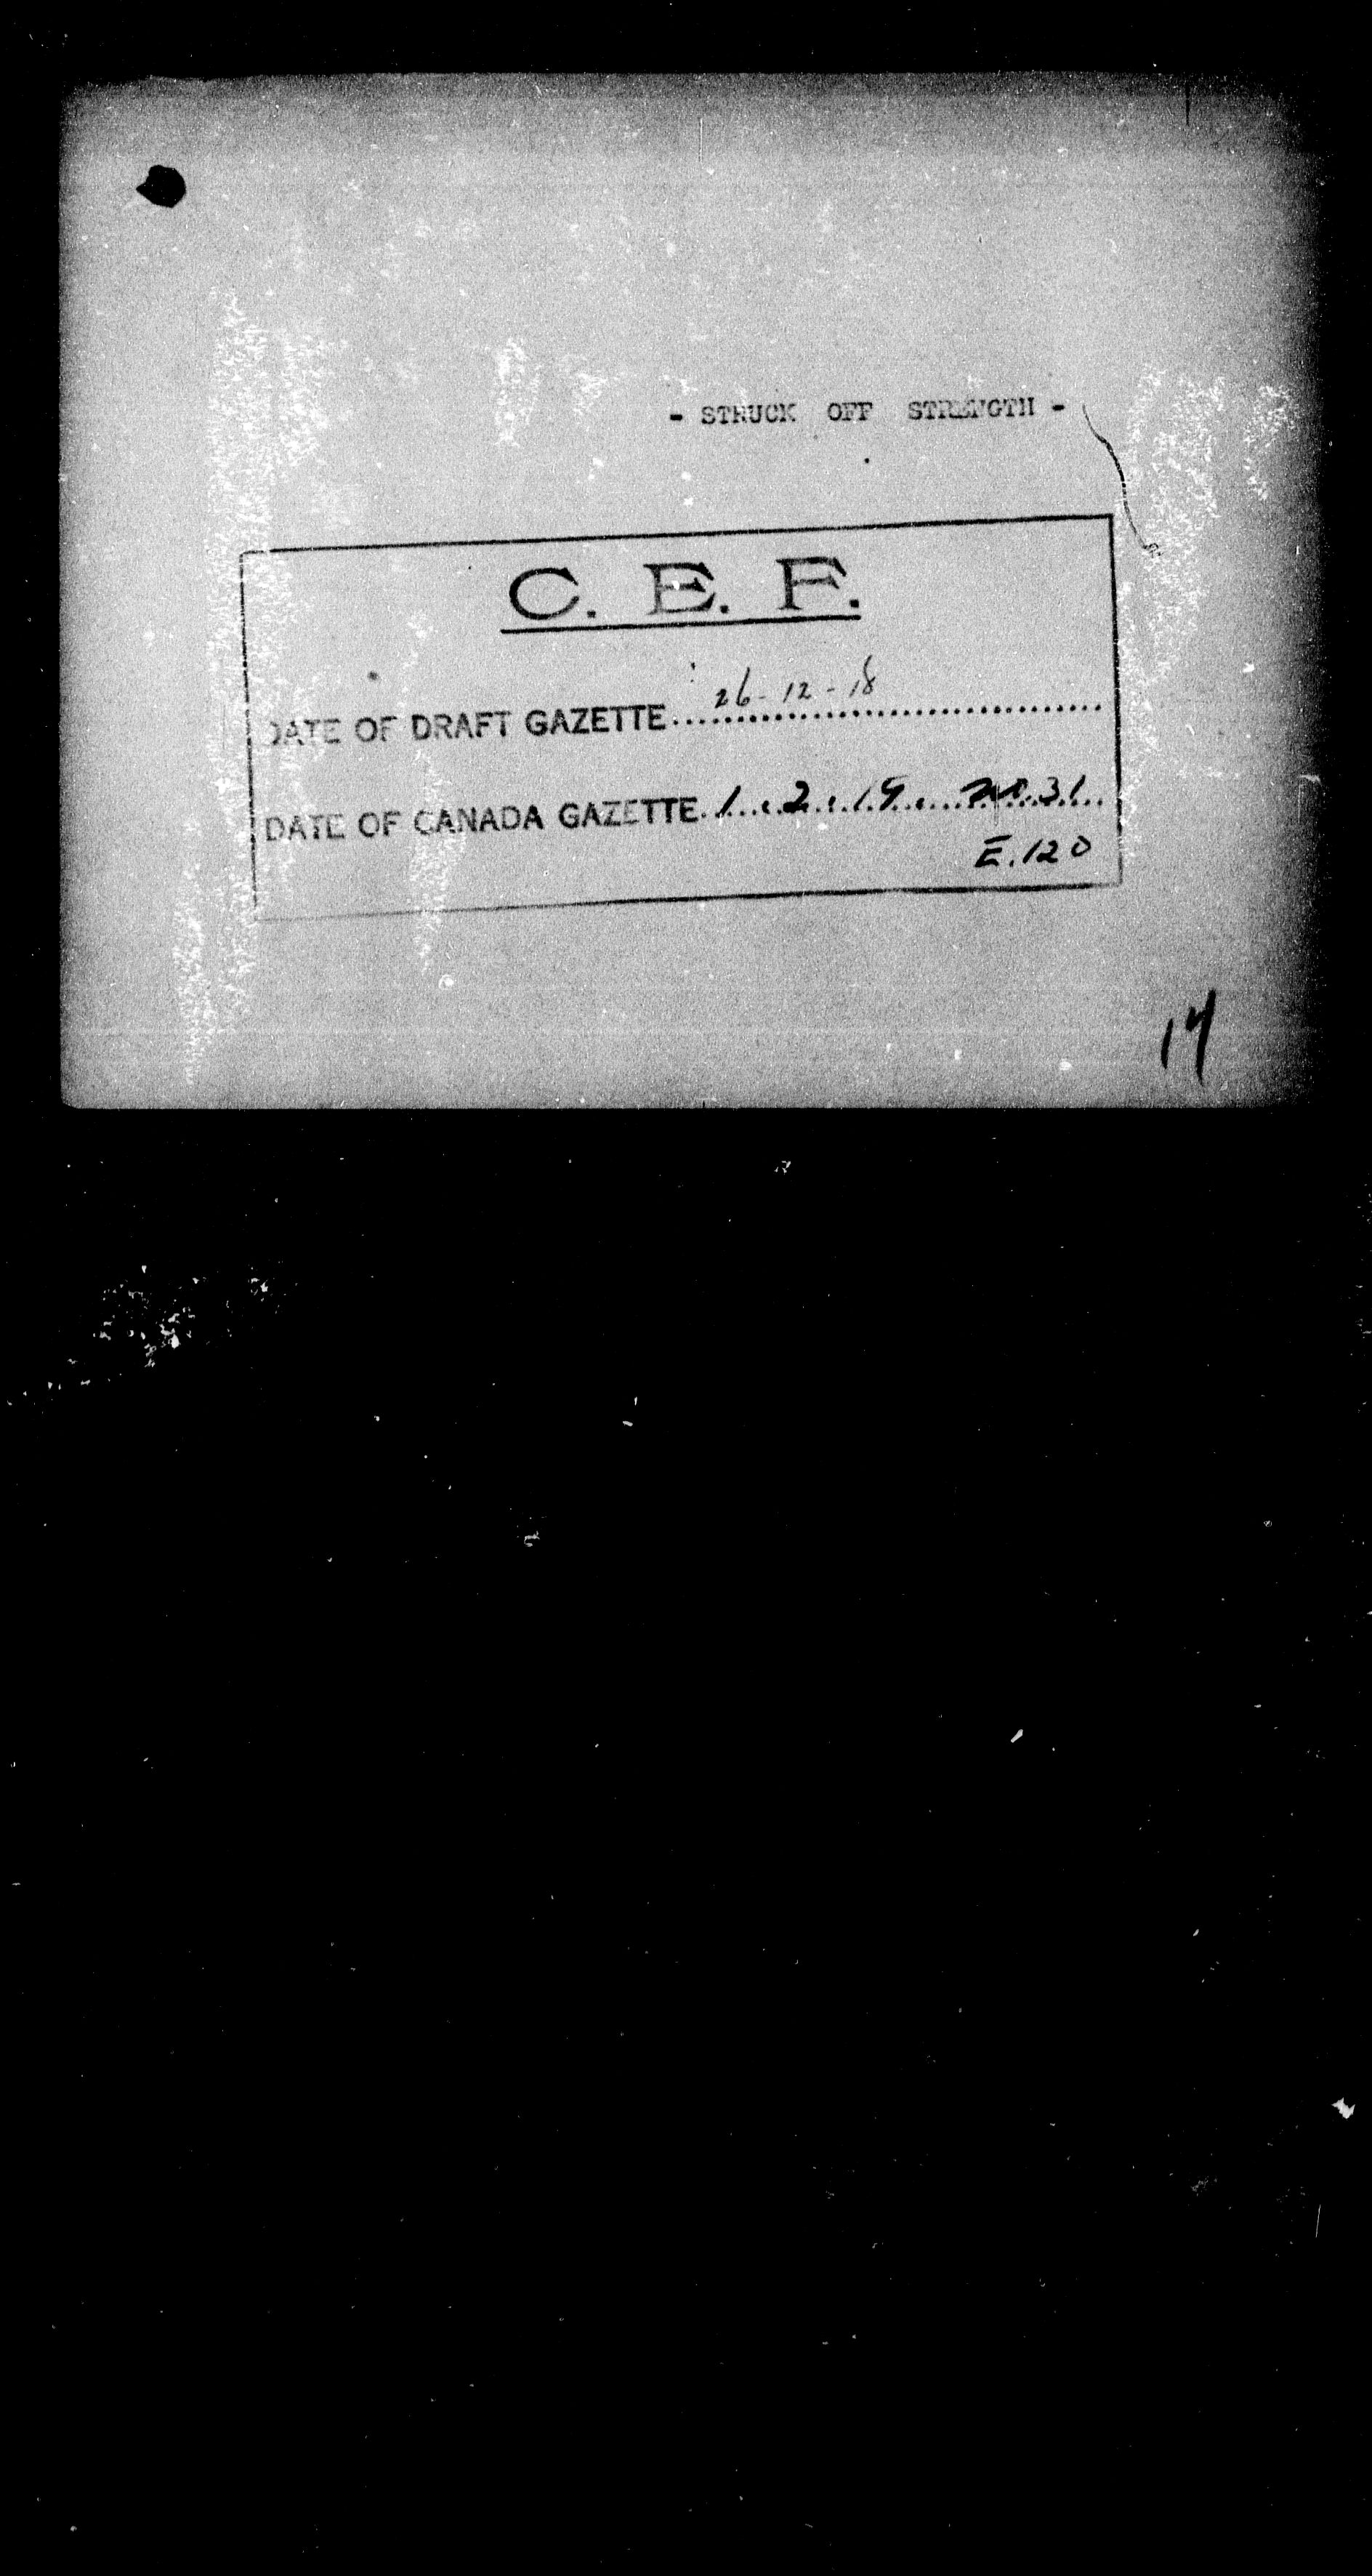 - STRUCK OFF STRENGTH -
C. E. F.
DATE OF DRAFT GAZETTE 26-12-18
DATE OF CANADA GAZETTE 1.2.19. No.31.
E.120
14